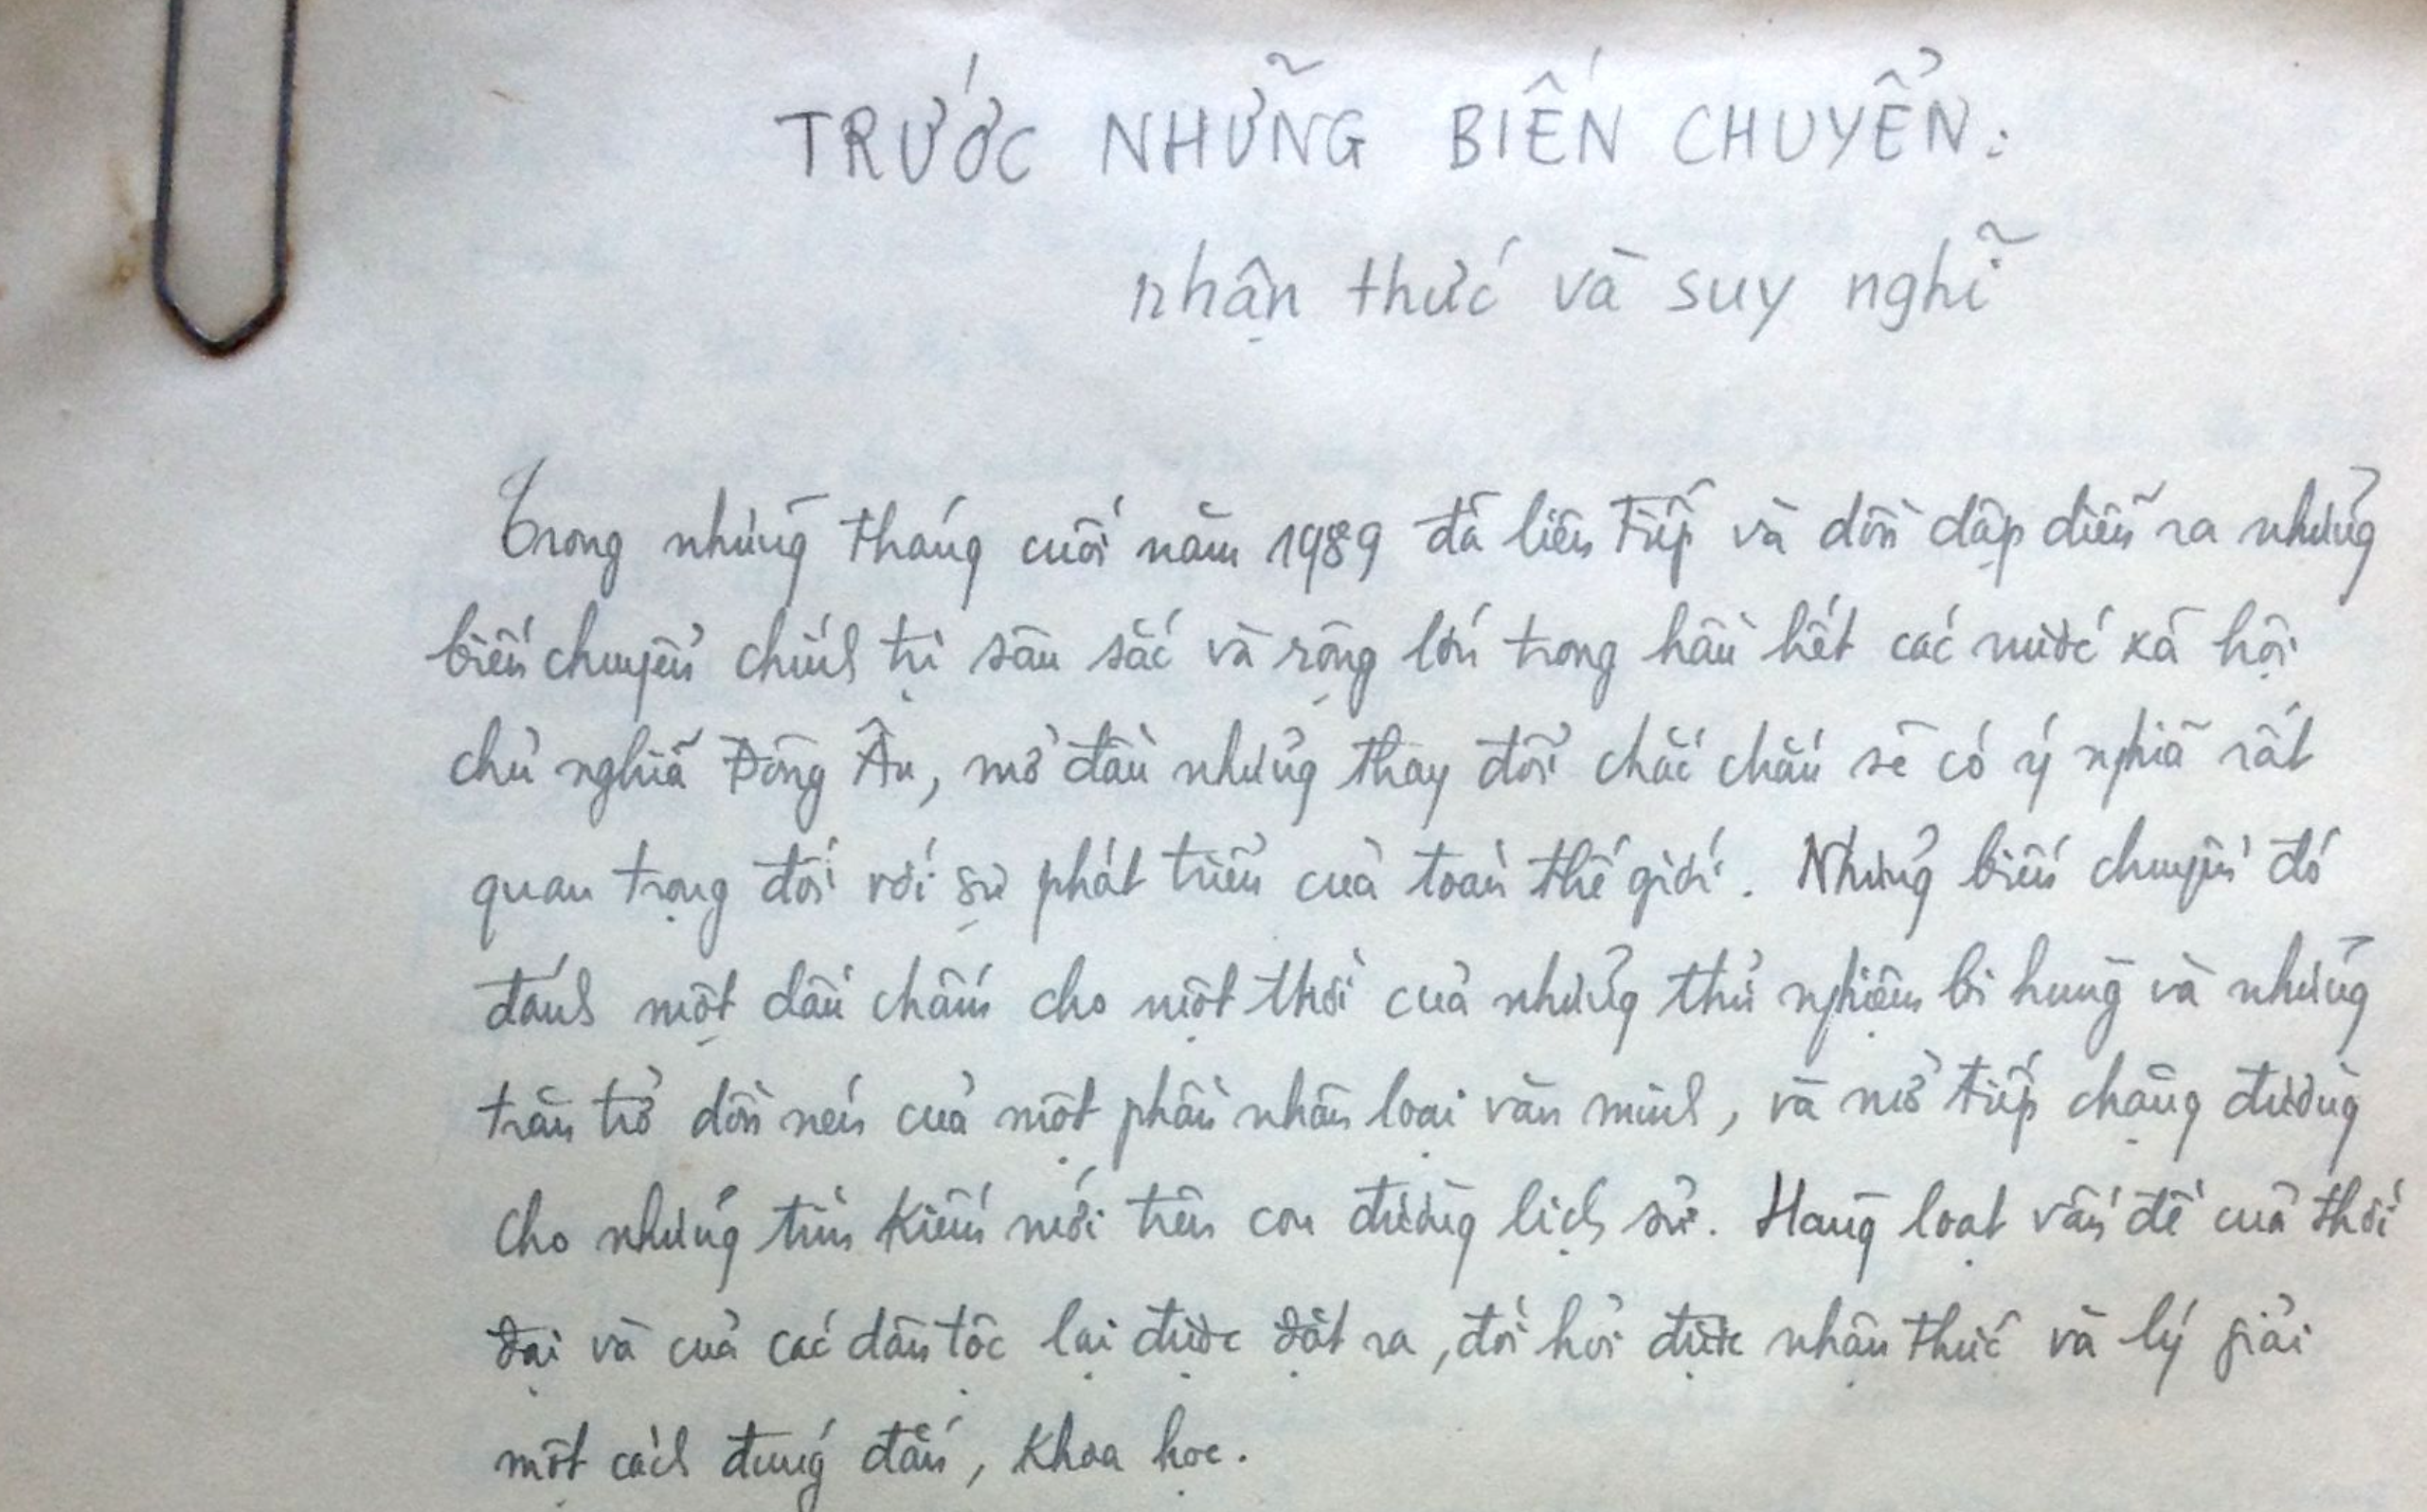 TRƯỚC NHỮNG BIẾN CHUYỂN:
nhận thức và suy nghĩ
Trong những tháng cuối năm 1989 đã liên tiếp và dồn dập diễn ra những
biến chuyển chính trị sâu sắc và rộng lớn trong hầu hết các nước xã hội
chủ nghĩa Đông Âu, mở đầu những thay đổi chắc chắn sẽ có ý nghĩa rất
quan trọng đối với sự phát triển của toàn thế giới. Những biến chuyển đó
đánh một dấu chấm cho một thời của những thử nghiệm bi hùng và những
trăn trở dồn nén của một phần nhân loại văn minh, và mở tiếp chặng đường
cho những tìm kiếm mới trên con đường lịch sử. Hàng loạt vấn đề của thời
đại và của các dân tộc lại được đặt ra, đòi hỏi được nhận thức và lý giải
một cách đúng đắn, khoa học.